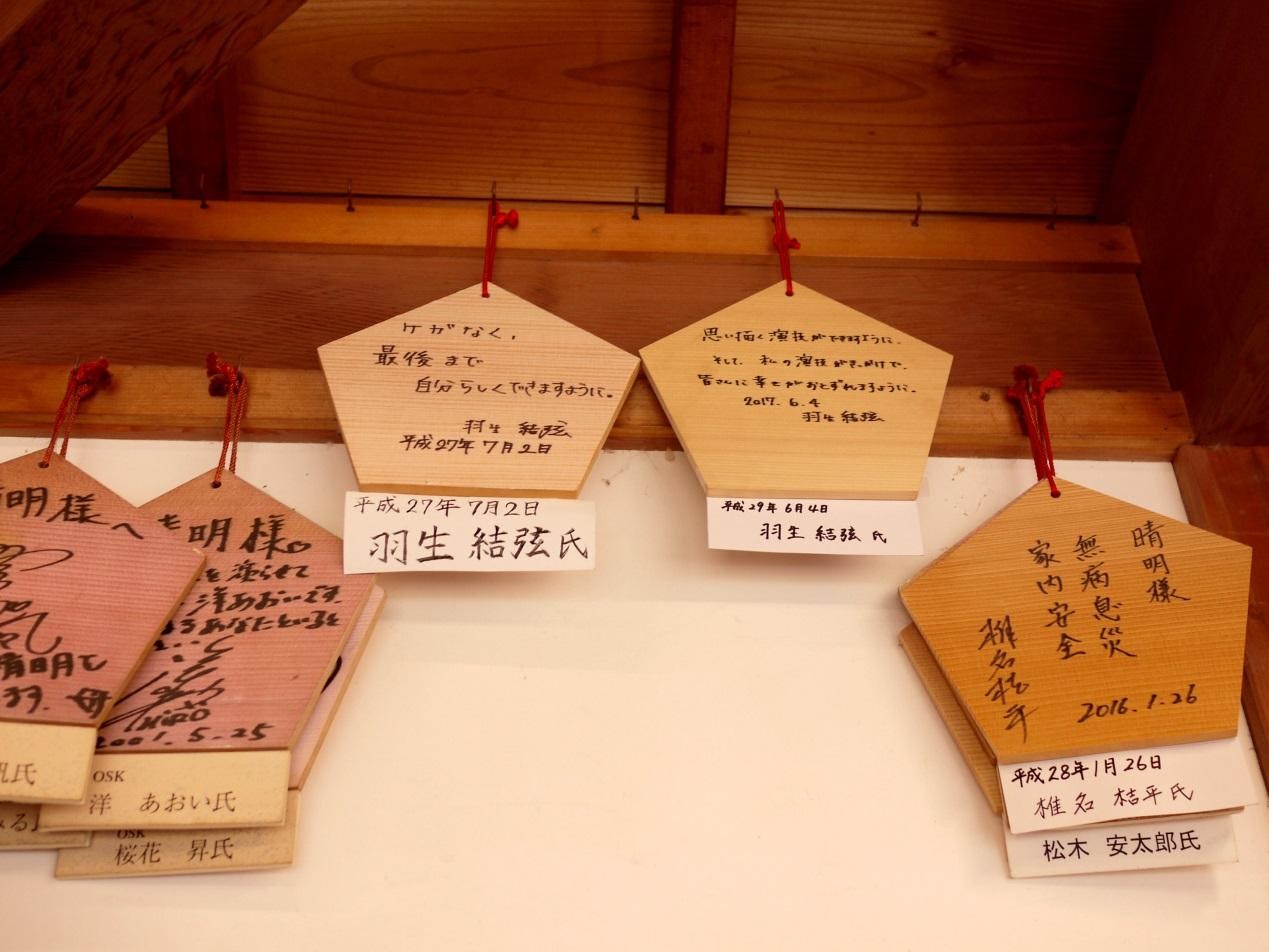 ケガなく、
最後まで
自分らしくできますように。
羽生 結弦
平成27年7月2日
平成27年 7月2日
羽生 結弦 氏
思い描く演技ができますように。
そして、私の演技がきっかけで、
皆さんに幸せがおとずれますように。
2017. 6. 4
羽生 結弦
平成29年 6月4日
羽生 結弦 氏
晴明様
無病息災
家内安全
椎名桔平
2016.1.26
平成28年1月26日
椎名 桔平氏
松木 安太郎氏
明様へ
晴明で
明様。
を塗られて
洋あおいです。
るあなたといると
2001.5.25
OSK
洋 あおい氏
OSK
桜花 昇氏